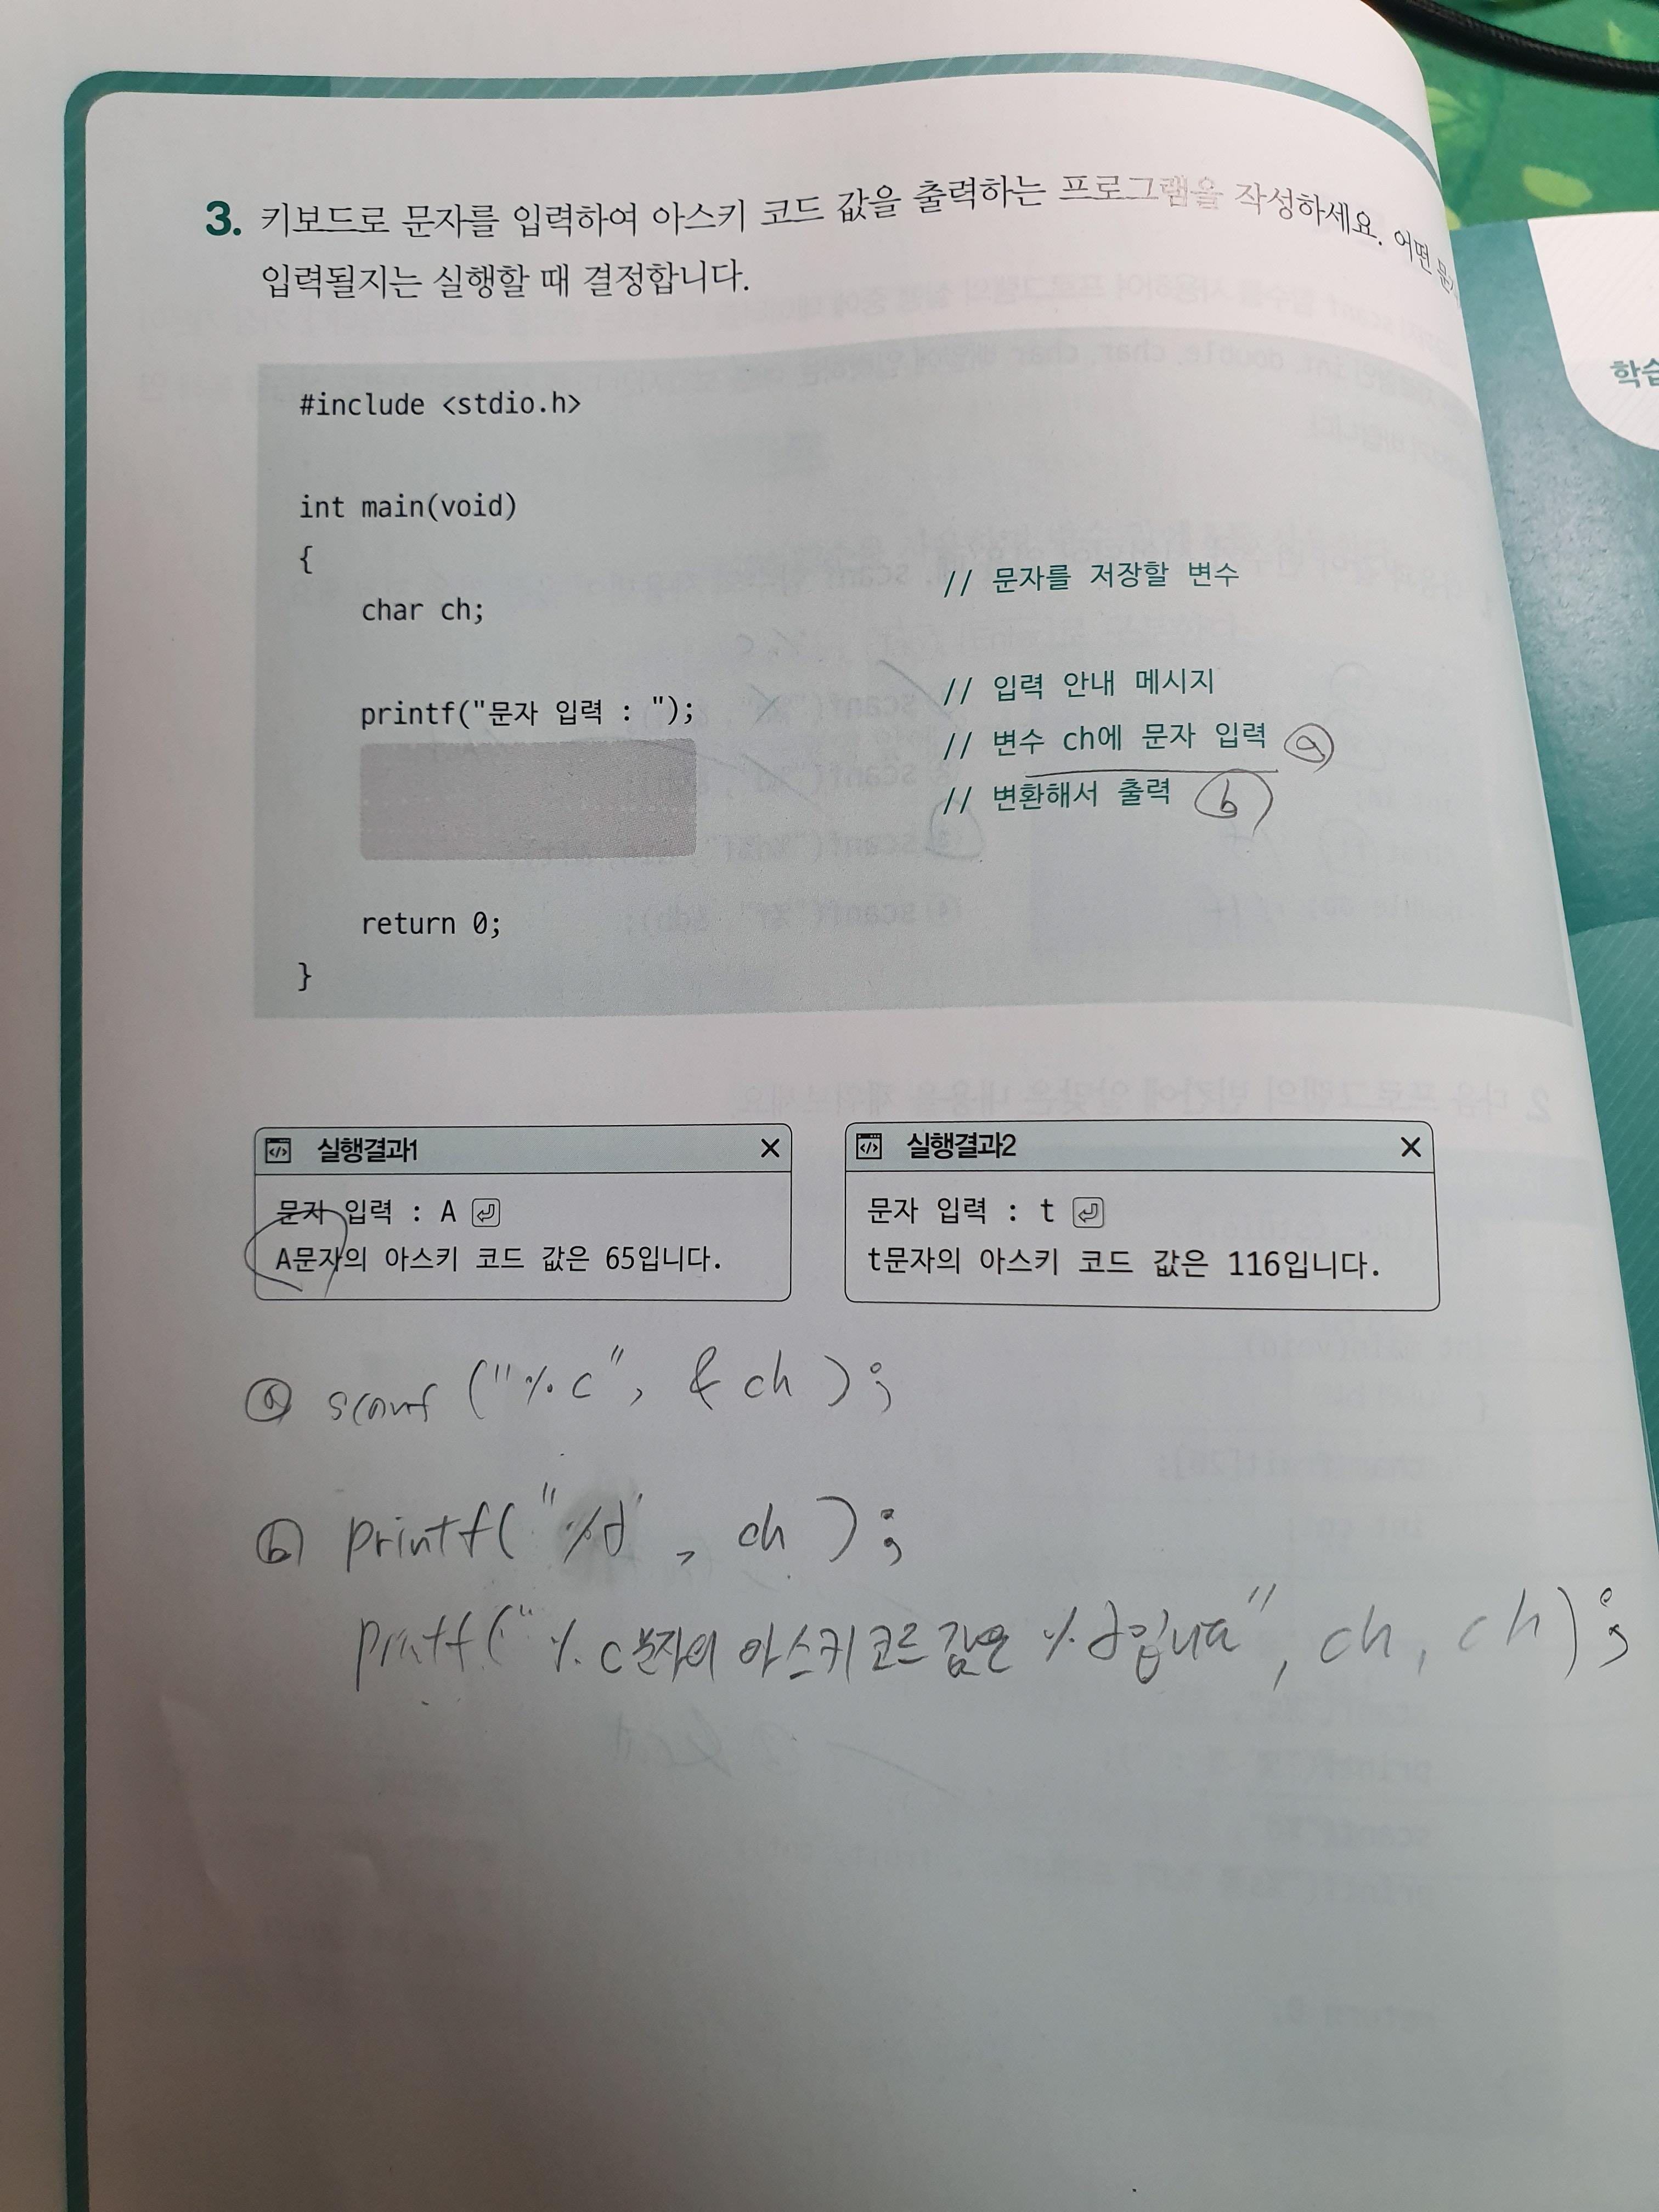 3. 키보드로 문자를 입력하여 아스키 코드 값을 출력하는 프로그램을 작성하세요. 어떤
입력될지는 실행할 때 결정합니다.
학습
#include <stdio.h>
int main(void)
{
char ch; // 문자를 저장할 변수
printf("문자 입력 : "); // 입력 안내 메시지
// 변수 ch에 문자 입력 ⓐ
// 변환해서 출력 ⓑ
return 0;
}
실행결과1 X
문자 입력 : A
A문자의 아스키 코드 값은 65입니다.
실행결과2 X
문자 입력 : t
t문자의 아스키 코드 값은 116입니다.
ⓐ scanf ("%c", &ch);
ⓑ printf("%d", ch);
printf("%c문자의 아스키 코드 값은 %d입니다", ch, ch);